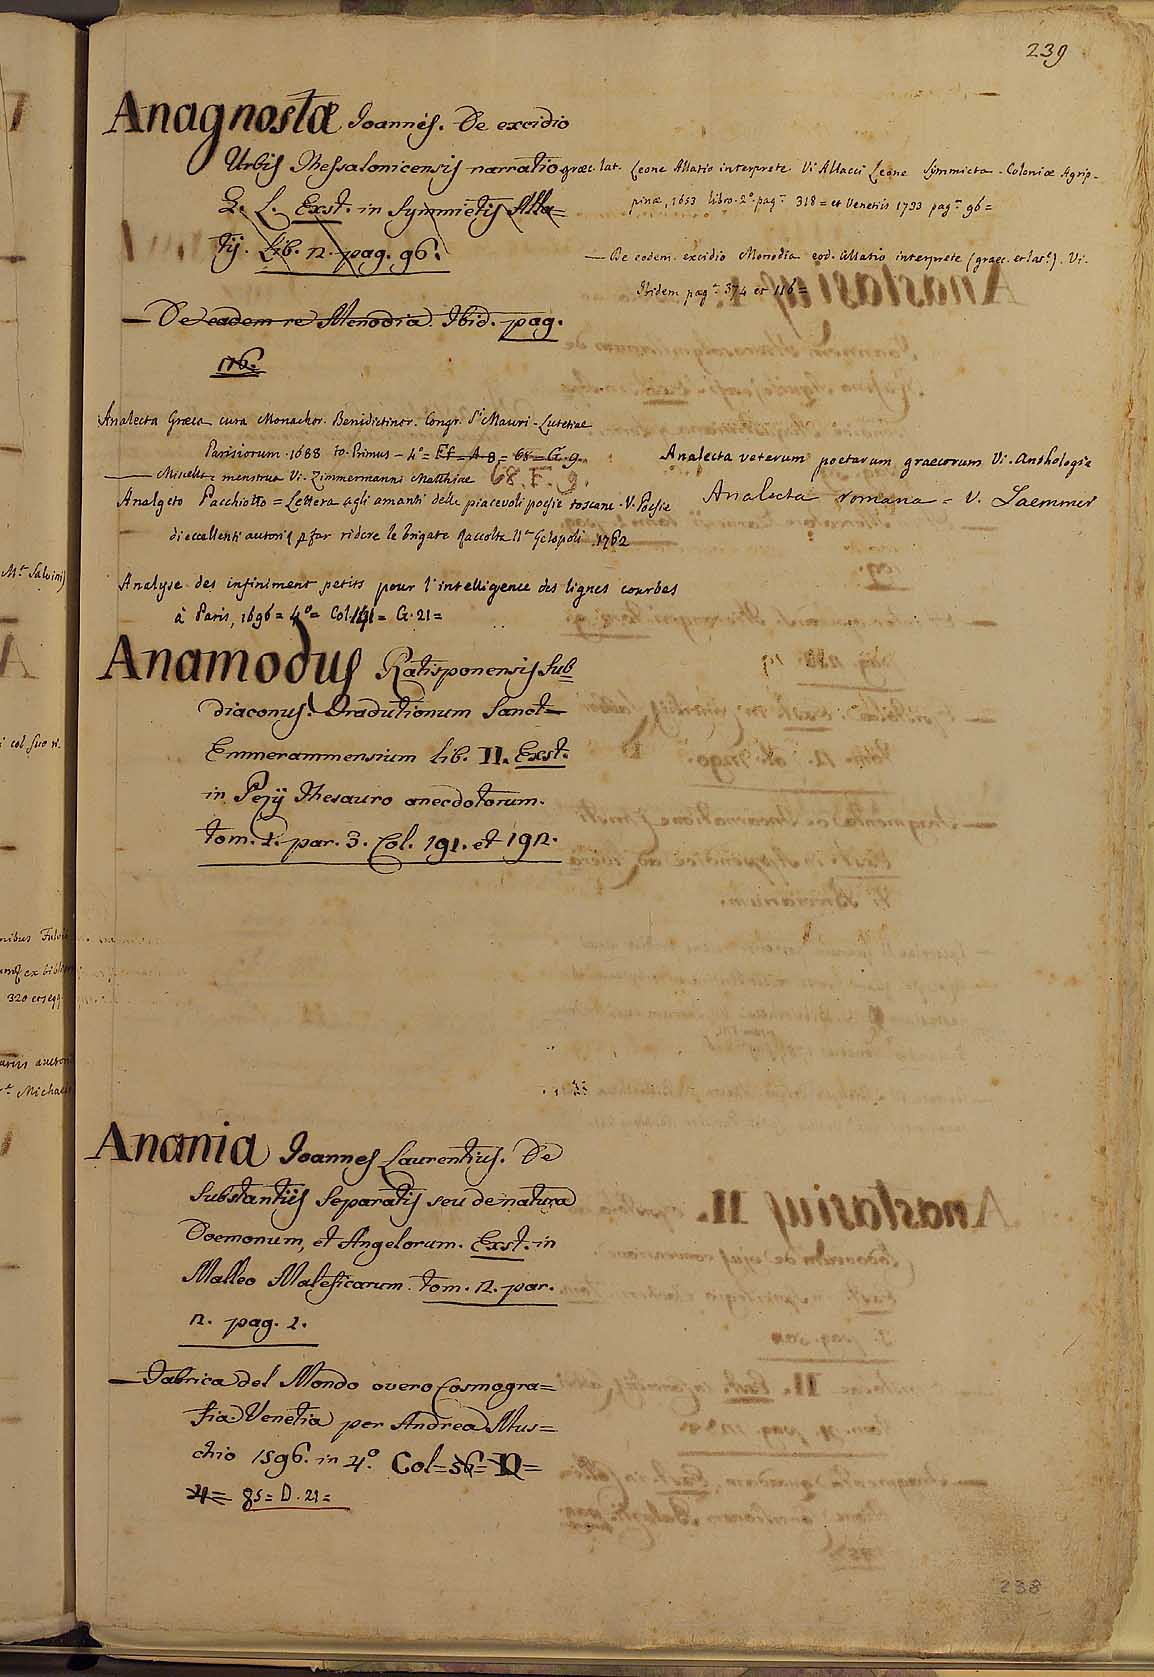 239
Anagnostæ Joannis. De excidio
Urbis Thessalonicensis narratio græc. lat. Leone Allatio interprete Vi Allacci Leone Symmicta - Coloniæ Agrip-
G. L. Exst. in Symmictis Alla= pinæ, 1653 libro. 2º pag. 318 = et Venetiis 1733 pag. 96 =
tij. Lib. 2. pag. 96.
— De eodem excidio Monodia eod. Allatio interprete (graec. et lat.) . Vi.
Ibidem pag. 374 et 116 =
— De eadem re Monodia. Ibid. pag.
116.
Analecta Græca cura Monachor. Benedictinor. Congr. Sti Mauri - Lutetiae
Parisiorum 1688 to. Primus - 4º = Ef = A. 8 = 68 = G. 9.
— Miscell. menstrua Vi. Zimmermanni Matthiae 68. F. 9.
Analecta veterum poetarum graecorum Vi. Anthologie
Analgeto Pacchiotto = Lettera agli amanti delle piacevoli poesie toscane. V. Poesie
di eccellenti autori p far ridere le brigate Raccolta IIª Gelopoli . 1762
Analecta romana = V. Laemmer
Analyse des infiniment petits pour l'intelligence des lignes courbes
à Paris, 1696 = 4º = Col. 141 = G. 21 =
Anamodus Ratisponensis Sub
diaconus. Tradutionum Sanct=
Emmerammensium lib. II. Exst.
in Pezij Thesauro anecdotorum.
tom. 1. par. 3. Col. 191. et 192.
Anania Joannes Laurentius. De
Substantiis Separatis seu de natura
Doemonum, et Angelorum. Exst. in
Malleo Maleficarum. tom. 2. par.
2. pag. 1.
— Fabrica del Mondo overo Cosmogra=
fia. Venetia per Andrea Mus=
chio 1596. in 4º. Col = 56 = D =
4 = 85 = D. 21 =
238